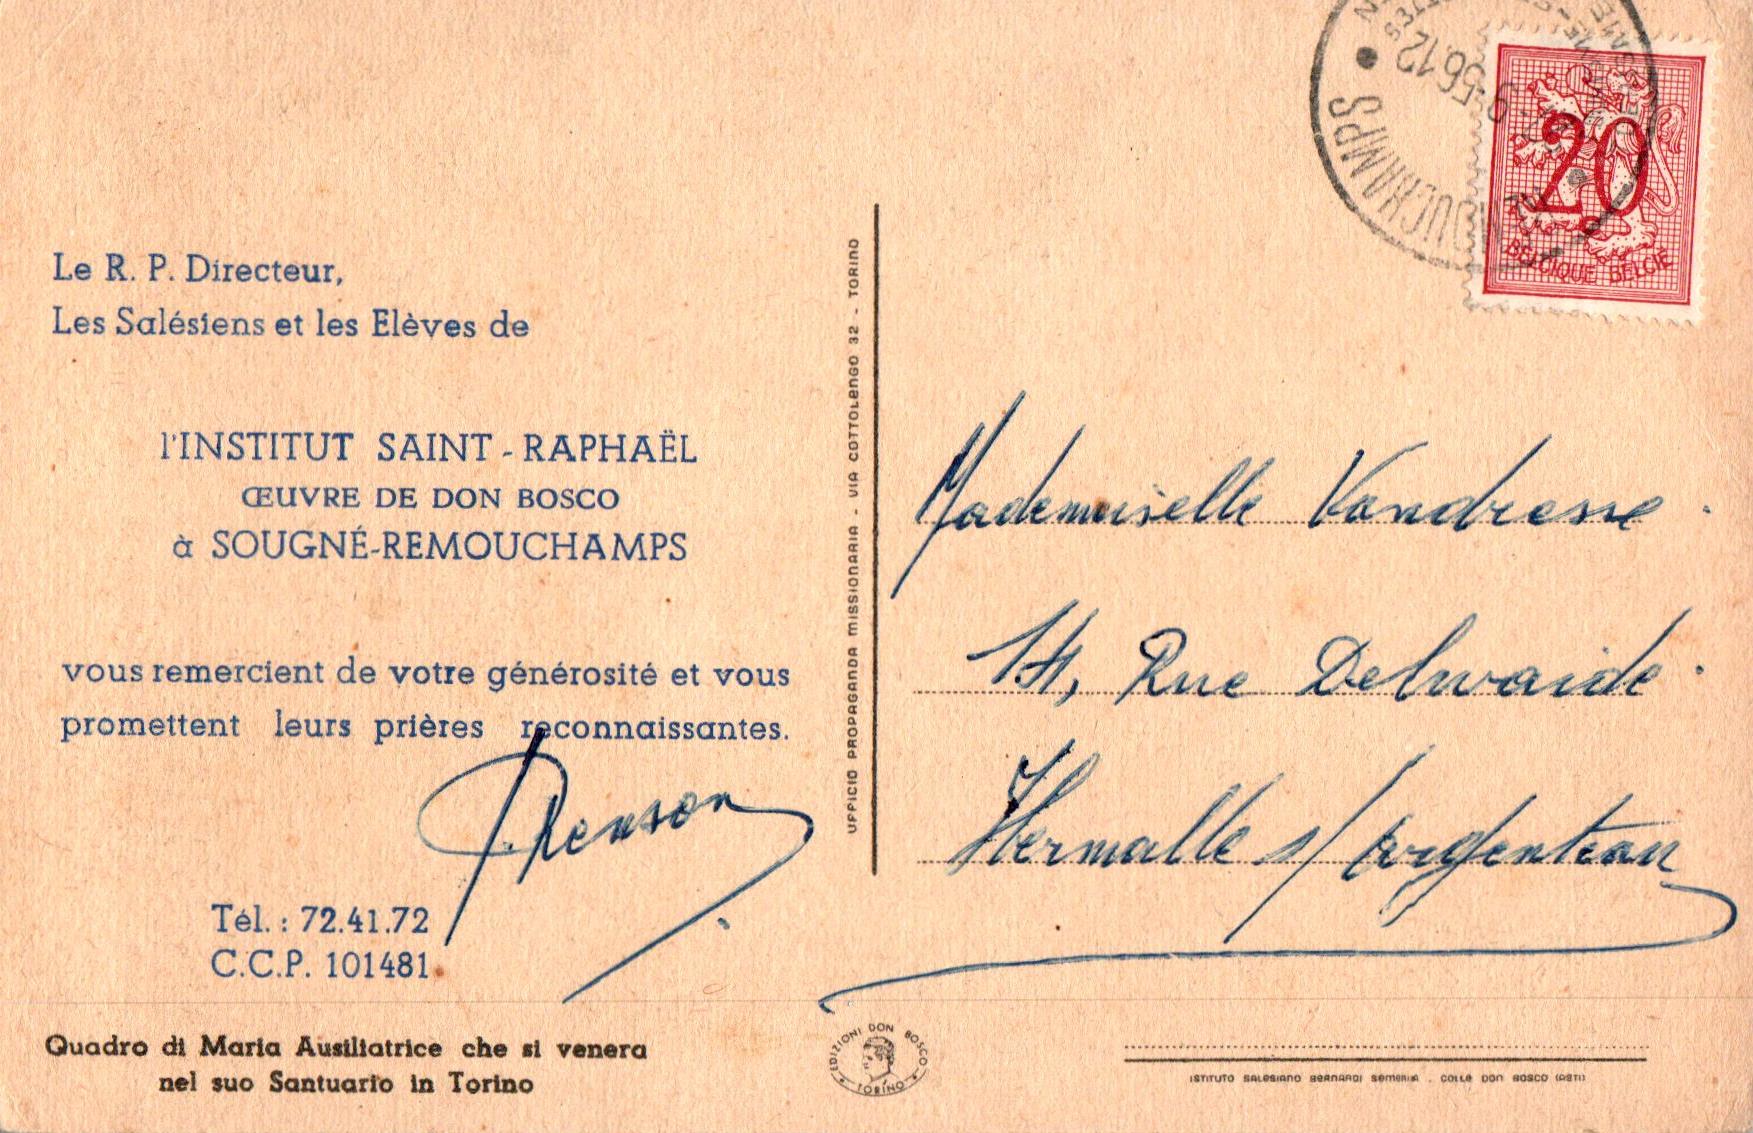 Le R. P. Directeur,
Les Salésiens et les Elèves de
l'INSTITUT SAINT-RAPHAËL
ŒUVRE DE DON BOSCO
à SOUGNÉ-REMOUCHAMPS
vous remercient de votre générosité et vous
promettent leurs prières reconnaissantes.
Renson
Tél. : 72.41.72
C.C.P. 101481
Quadro di Maria Ausiliatrice che si venera
nel suo Santuario in Torino
UFFICIO PROPAGANDA MISSIONARIA - VIA COTTOLENGO 32 - TORINO
EDIZIONI DON BOSCO
TORINO
20
BELGIQUE BELGIË
Mademoiselle Vandresse.
Rue Delwaide.
Hermalle s/ Argenteau
ISTITUTO SALESIANO BERNARDI SEMERIA . COLLE DON BOSCO (ASTI)